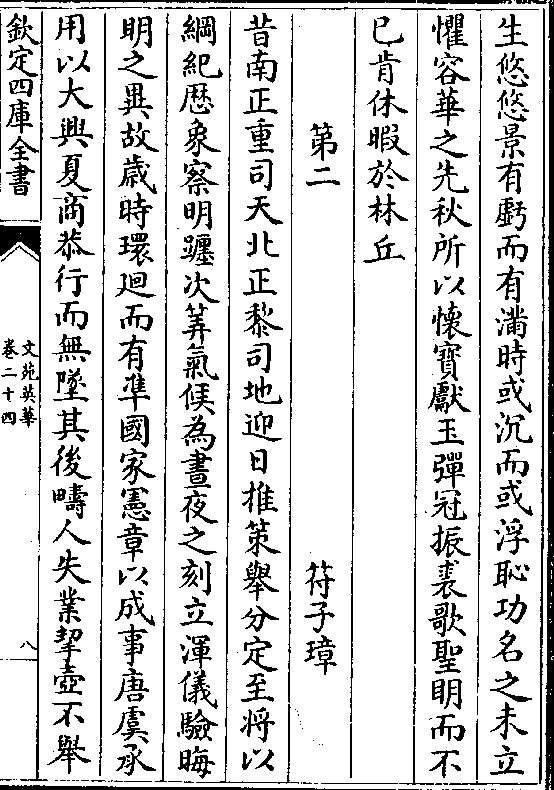 生悠悠景有虧而有滿時或沉而或浮恥功名之未立
懼容華之先秋所以懷寳獻玉彈冠振裘歌聖明而不
已肯休暇於林丘
第二 符子璋
昔南正重司天北正黎司地迎日推策舉分定至將以
綱紀歴象察明躔次筭氣候為晝夜之刻立渾儀驗晦
明之異故歳時環廻而有凖國家憲章以成事唐虞承
用以大興夏商恭行而無墜其後疇人失業挈壺不舉
欽定四庫全書
文苑英華
卷二十四
八